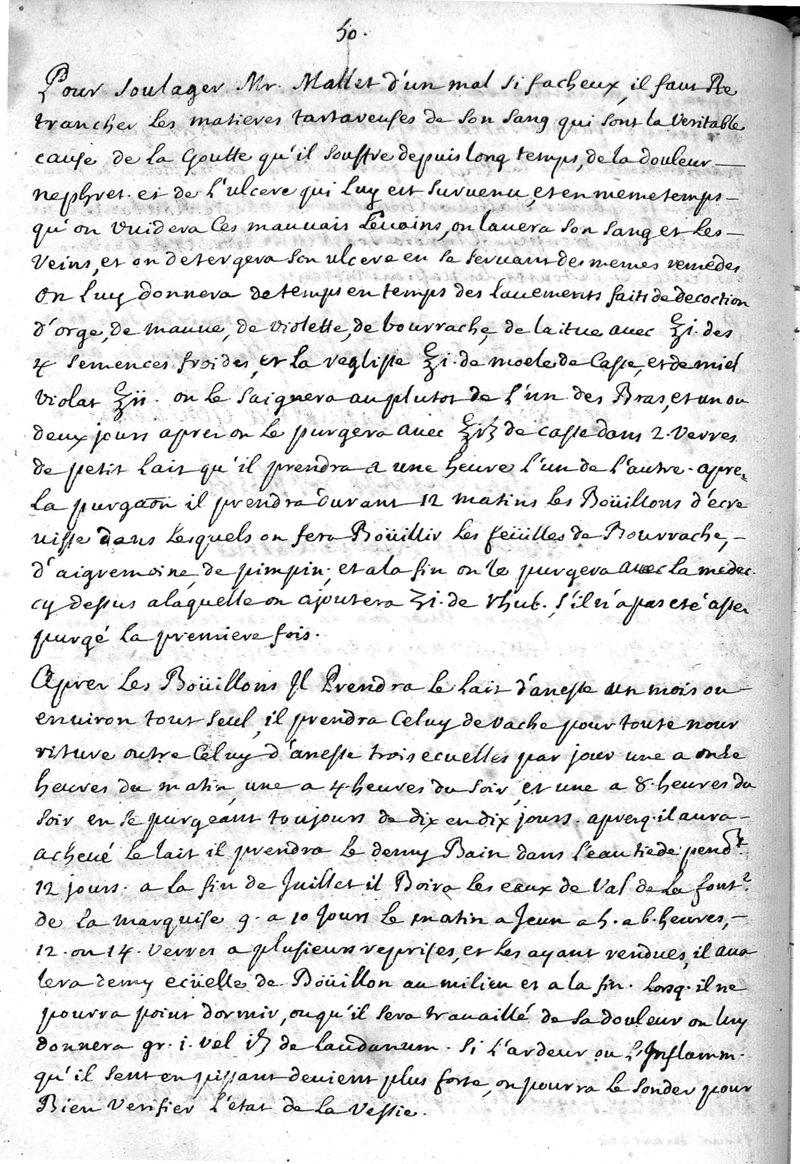 50.
Pour soulager Mr. Mallet d'un mal si facheux, il faut Re
trancher les matieres tartareuses de son sang qui sont la veritable
cause de la Goutte qu'il souffre depuis long temps, de la douleur
nephret. et de l'ulcere qui luy est survenu, et en meme temps
qu'on vuidera ces mauvais levains, on lavera son sang et les
veins, et on detergera son ulcere en se servant des memes remedes
on luy donnera de temps en temps des lavements faits de decoction
d'orge, de mauve, de violette, de bourrache, de laitue avec ℥i. des
4 semences froides, et la reglisse ℥i. de moele de Casse, et de miel
violat ℥ii. on le saignera au plutot de l'un des Bras, et un ou
deux jours apres on le purgera avec ℥iß de casse dans 2. verres
de petit lait qu'il prendra a une heure l'un de l'autre. apres
la purgaōn il prendra durant 12 matins les Boüillons d'ecre
visse dans lesquels on fera Boüillir les feüilles de Bourrache,
d'aigremoine, de pimpin. et a la fin on le purgera avec la medec.
cy dessus a laquelle on ajoutera ʒi. de rhub. s'il n'a pas eté asse
purgé la premiere fois.
Apres les Boüillons Il Prendra le lait d'anesse un mois ou
environ tout seul, il prendra Celuy de vache pour toute nour
riture outre Celuy d'anesse trois ecuelles par jour une a onze
heures du matin, une a 4 heures du soir, et une a 8. heures du
soir en se purgeant toujours de dix en dix jours. apres q. il aura
achevé le lait il prendra le demy Bain dans l'eau tiede pend.t
12 jours. a la fin de Juillet il Boira les eaux de Val de la font.e
de la marquise 9. a 10 jours le matin a Jeun a 5. a 6. heures,
12. ou 14. verres a plusieurs reprises, et les ayant rendues, il ava
lera demy ecüelle de Boüillon au milieu et a la fin. Lorsq. il ne
pourra point dormir, ou qu'il sera travaillé de sa douleur on luy
donnera gr. i. vel iß de laudanum. si l'ardeur ou l'Inflamm.
qu'il sent en pissant devient plus forte, on pourra le sonder pour
Bien verifier l'etat de la Vessie.